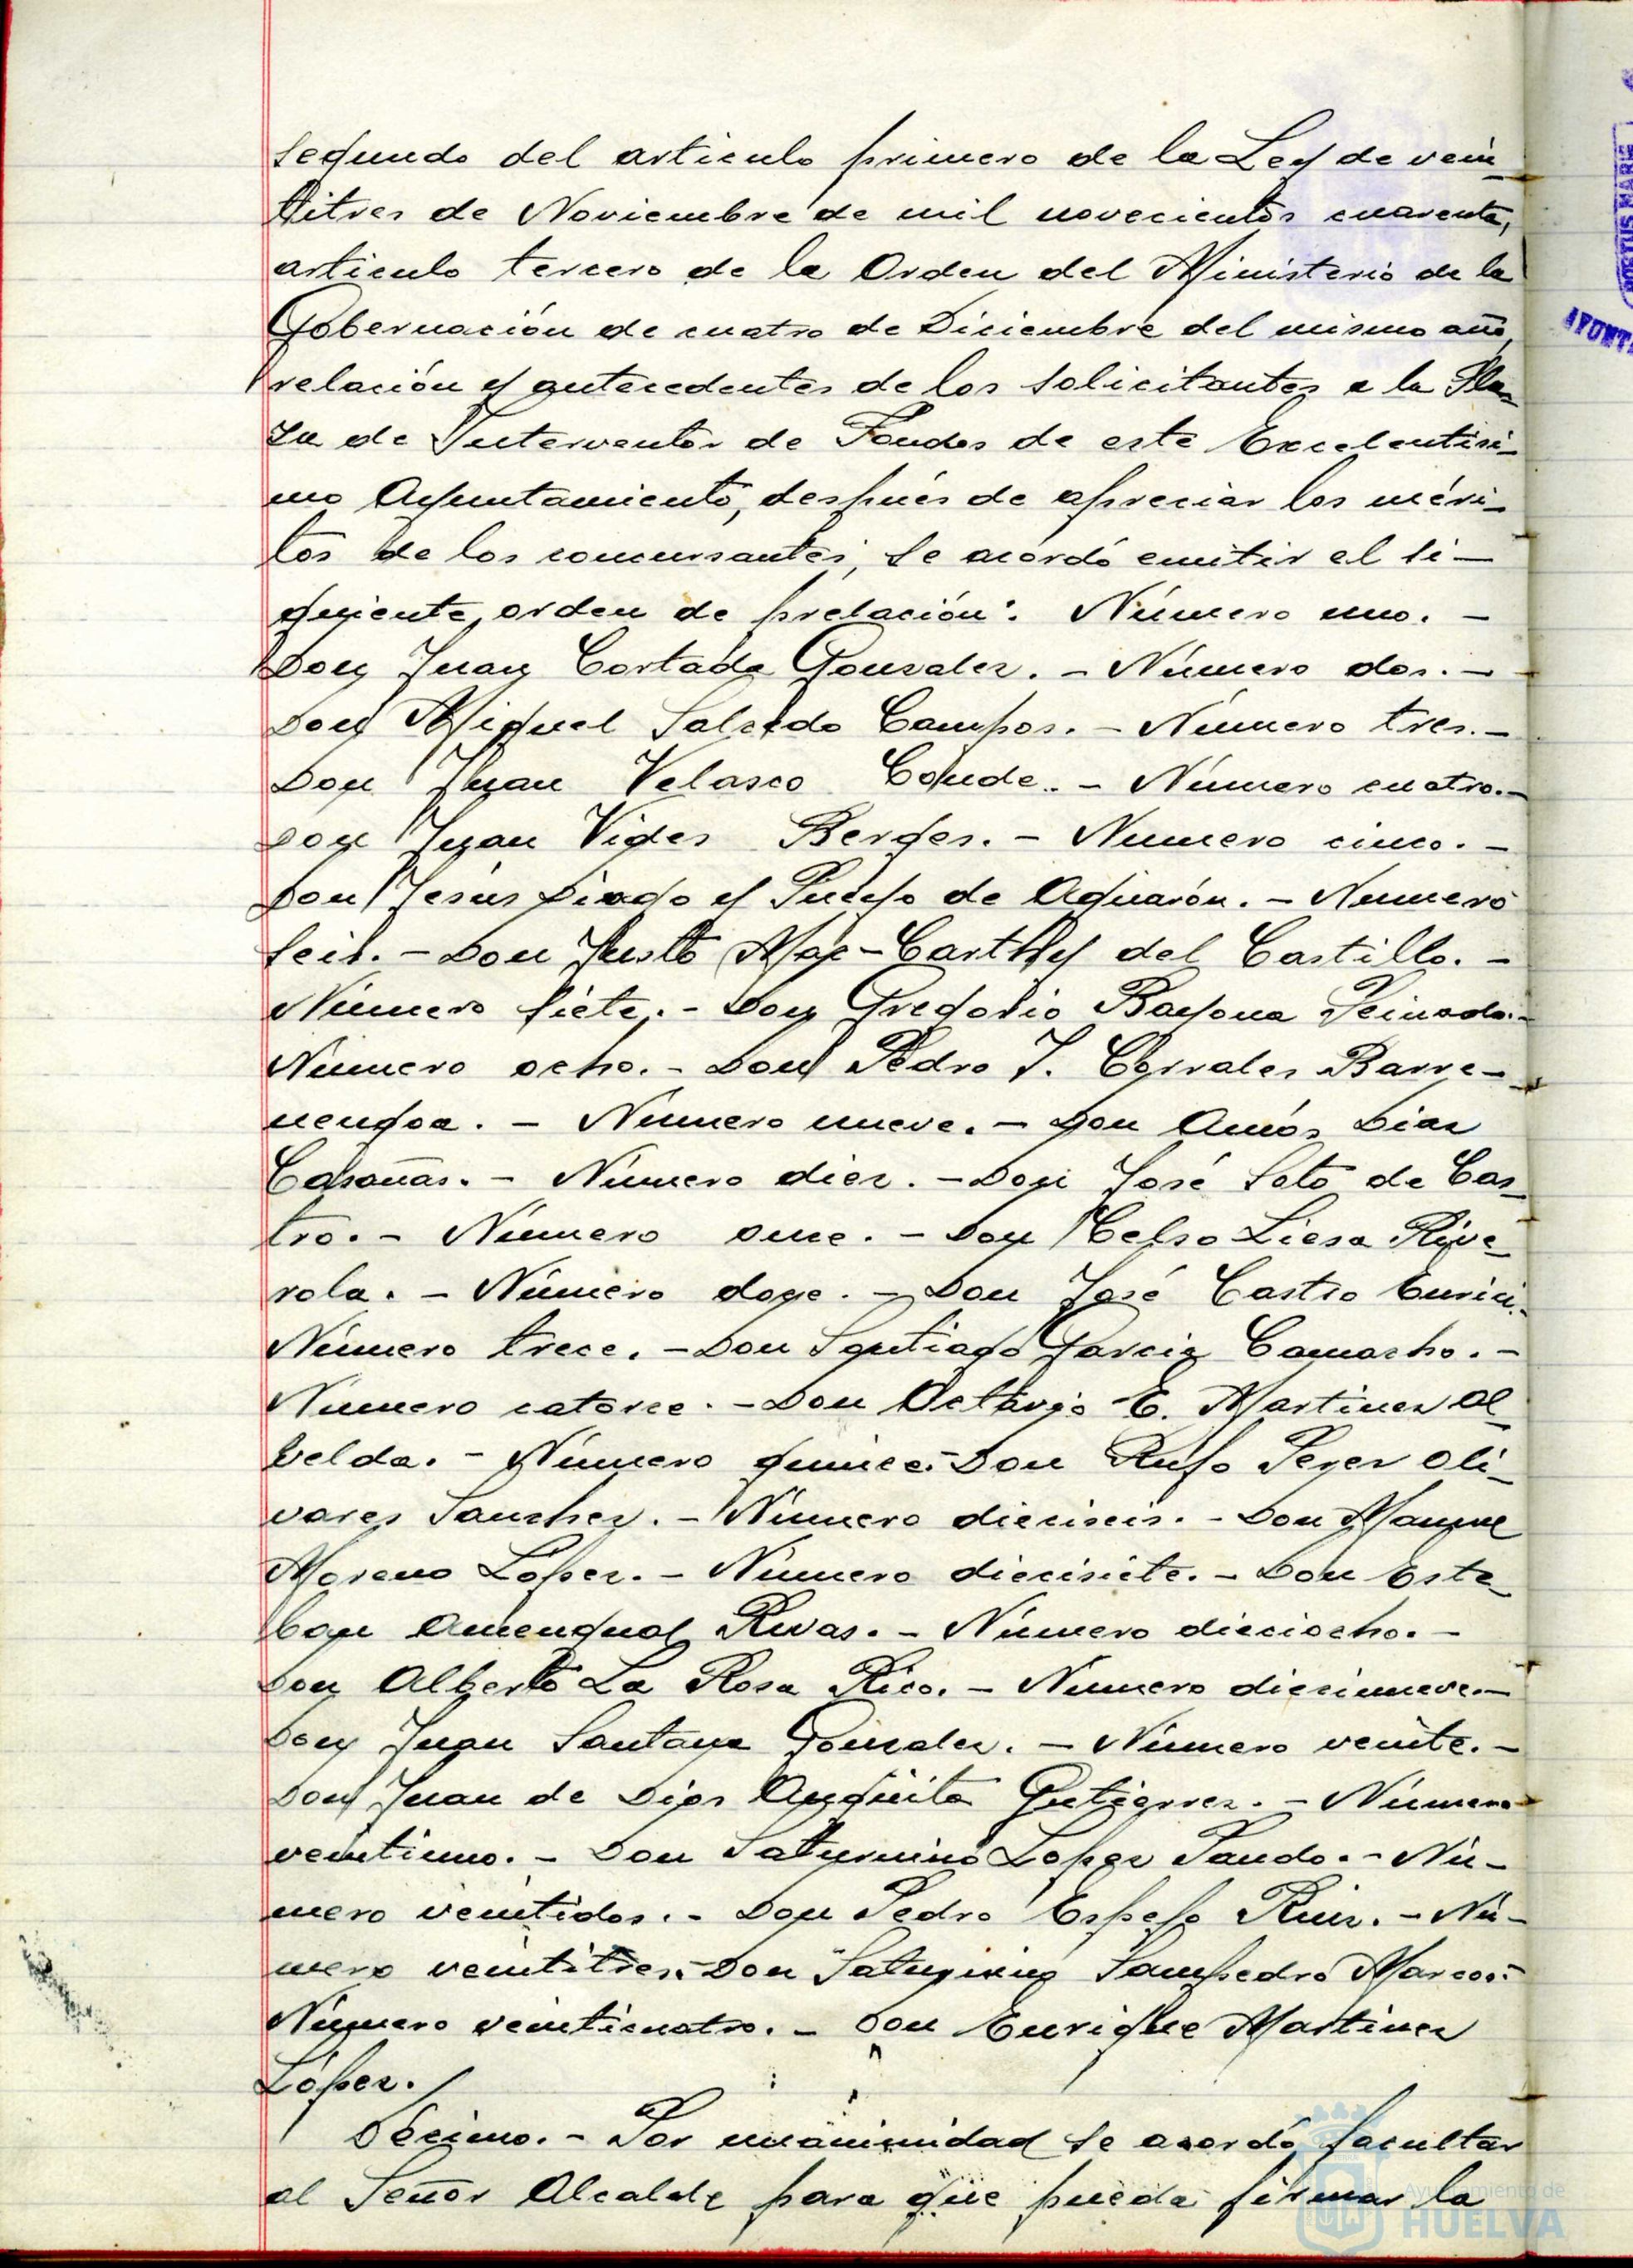 segundo del articulo primero de la Ley de vein
titres de Noviembre de mil novecientos cuarenta,
articulo tercero de la Orden del Ministerio de la
Gobernación de cuatro de Diciembre del mismo año,
relación y antecedentes de los solicitantes a la Pla
za de Interventor de Fondos de este Excelentisi-
mo Ayuntamiento, después de apreciar los méri-
tos de los concursantes, se acordó emitir el si-
guiente orden de prelación: Número uno. -
Don Juan Cortada Gonzalez. - Número dos. -
Don Miguel Salcedo Campos. - Número tres. -
Don Juan Velasco Conde. - Número cuatro. -
Don Juan Vides Berges. - Numero cinco. -
Don Jesús y Pueyo de Aguarón. - Numero
seis. - Don Justo Mac-Carthy del Castillo. -
Número siete. - Don Gregorio Bayona Peinado. -
Número ocho. - Don Pedro J. Corrales Barre-
nengoa. - Número nueve. - Don Amós Diaz
Casañas. - Número diez. - Don José Soto de Cas
tro. - Número once. - Don Celso Liesa Rive
rola. - Número doce. - Don José Castro
Número trece. - Don Santiago Garcia Camacho. -
Número catorce. - Don Octavio E. Martinez Al
belda. - Número quince. - Don Rufo Perez Oli
vares Sanchez. - Número dieciseis. - Don Manuel
Moreno López. - Número diecisiete. - Don Este
ban Amengual Rivas. - Número dieciocho. -
Don Alberto La Rosa Rico. - Número diecinueve. -
Don Juan Santana Gonzalez. - Número veinte. -
Don Juan de Dios Anguita Gutierrez. - Número
veintiuno. - Don Saturnino Lopez Pando. - Nú-
mero veintidos. - Don Pedro Espeso Ruiz. - Nú-
mero veintitres. - Don Saturnino Sampedro Marcos. -
Número veinticuatro. - Don Enrique Martinez
López.
Décimo. - Por unanimidad se acordó facultar
al Señor Alcalde para que pueda firmar la
PORTUS MARIS
AYUNT
Ayuntamiento de
HUELVA